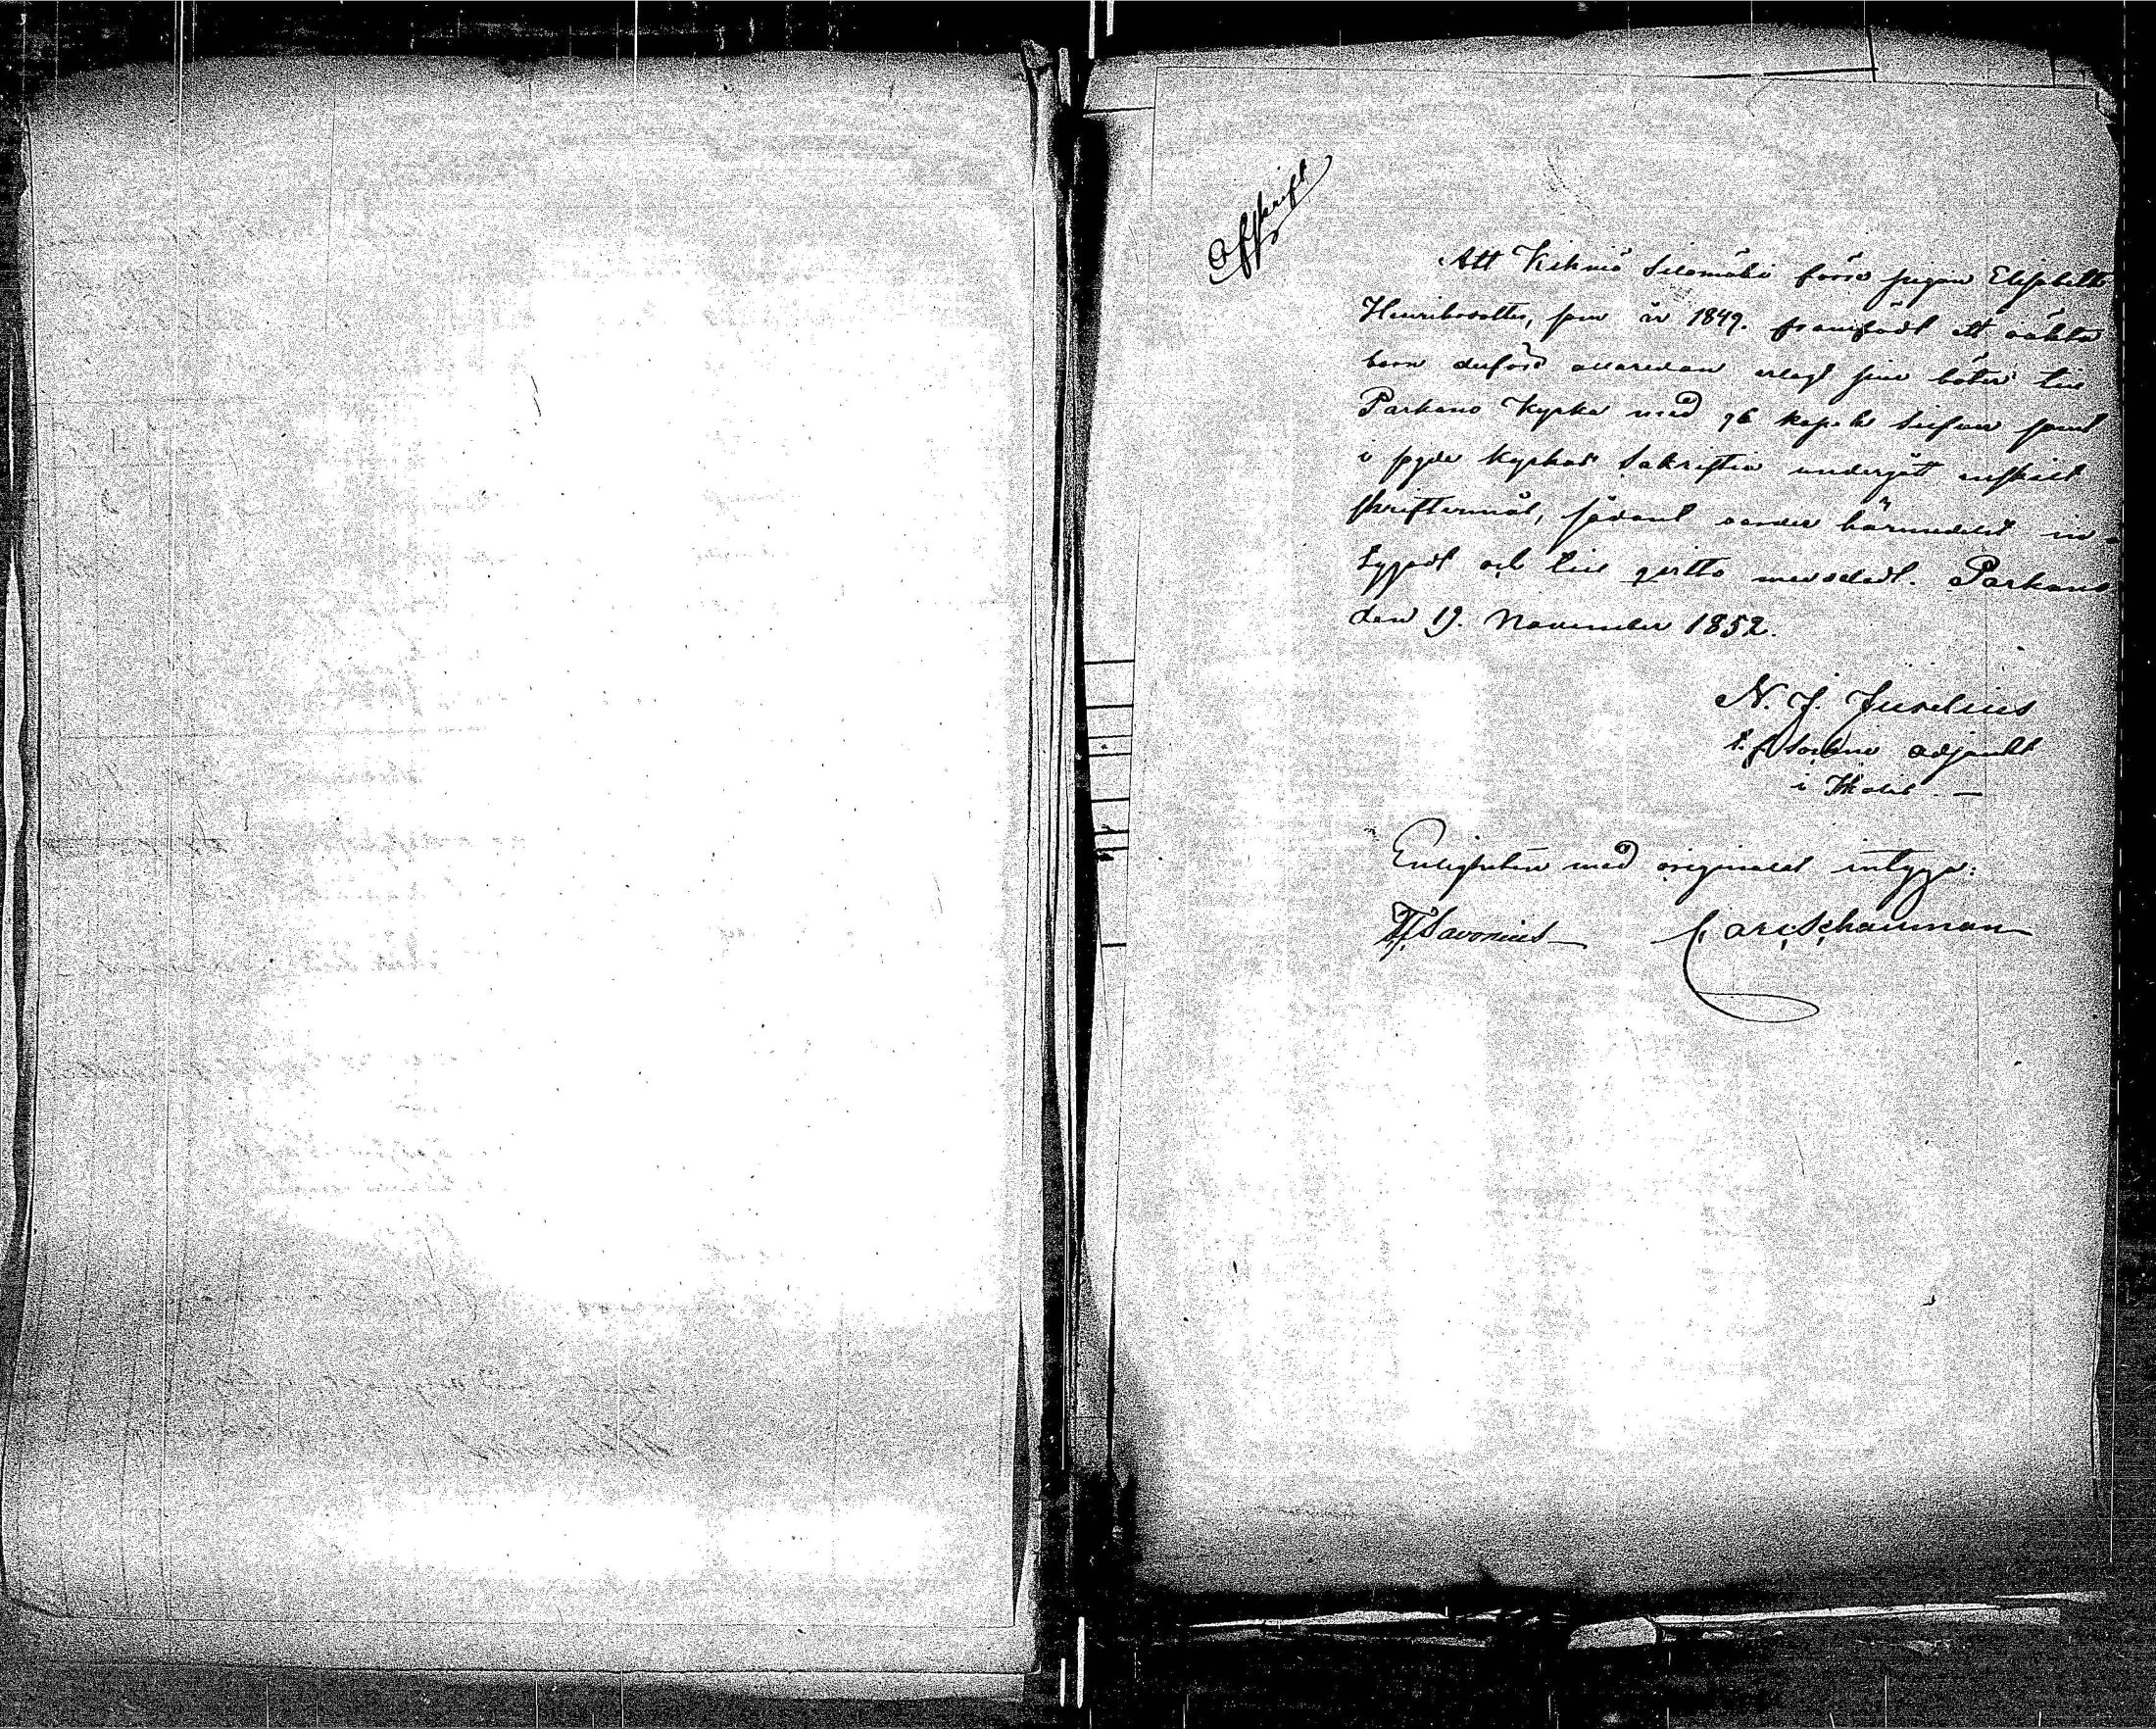 Afskrift
Att Kihniö Silomäki förra pigan Elisabeth
Henriksdotter, som år 1849. framfödt ett oäkta
barn derför allaredan erlagt sine böter till
Parkano Kyrka med 96 kop. Silfver samt
i sgde kyrkas Sakristia undergått enskilt
skriftermål, sådant varder härmedelst in-
tygadt och till qvitto meddeladt. Parkano
den 19. November 1852.
N. J. Juselius
Socken adjunkt
i Ikalis
Enligheten med originalet intyga:
Savonius Carl Schauman